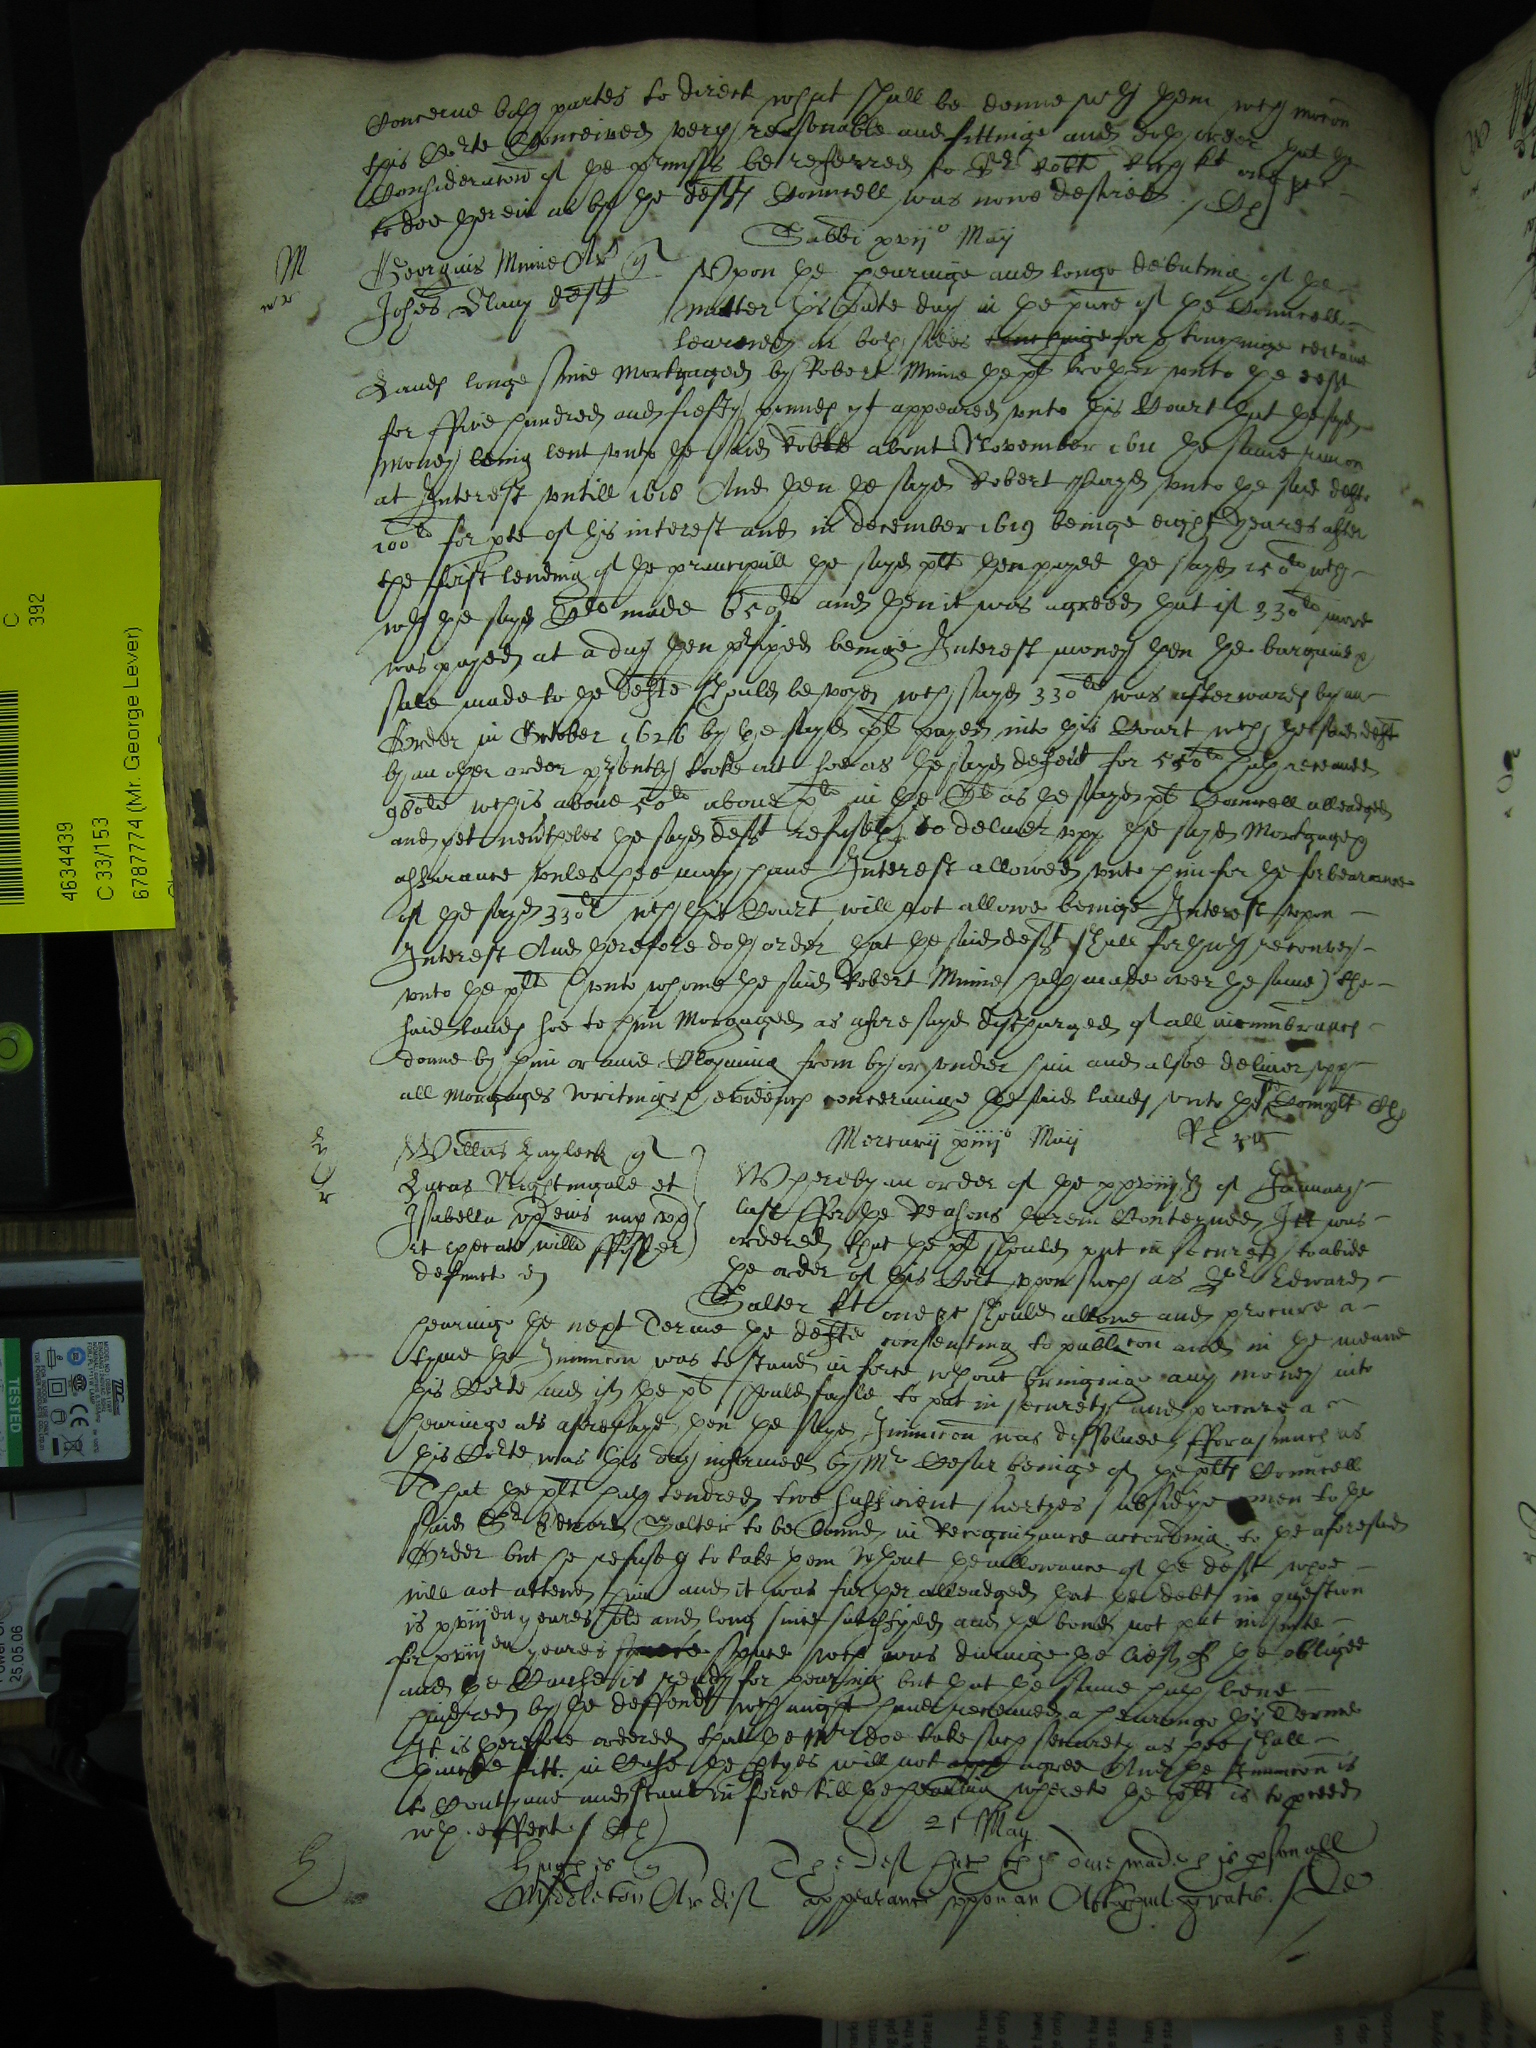 Concerne both partes to direct what shall be donne wth them wch mocon
this Corte Conceived very reasonable and fittinge and doth order that the
Consideracon of the premiss be referred to Sr Robt Rich kt one &c
to doe therein as by the defts Councell was nowe desired
Sabbti xvijo Maij
M
Georgius Minne Ar q
Johes
deft
Upon the hearinge and longe debating of the
matter this pnte day in the pnce of the Councell
learened on both sides for & touchinge certaine
Lands longe since Mortgaged by Robert Minne the plt brother unto the deft
for ffive hundred and fiefty pounds yt appeared unto this Court that the sayd
money being lent unto the said Robte about November 1611 the same runon
at Interest untill 1618 And then the sayd Robert payed unto the said defte
100li for pte of his interest and in december 1619 beinge eight yeares after
the first lending of the principall the sayd plt then payed the sayd 550li wch
wth the sayd Cli made 650li and then it was agreed that if 330li more
was payed at a day then pfixed beinge Interest money then the bargaine &
sale made to the defte should be voyd wch sayd 330li was afterwards by an
Order in October 1626 by the sayd plt payed into this Court wch the said deft
by an other order psently tooke out soe as the sayd defend for 550li hath receaved
980li wch is above 50li above xli in the Cli as the sayd plt Councell alleadged
and yet neverthelesse the sayd deft refuseth to deliver upp the sayd Mortgage &
assurance unles hee may have Interest allowed unto him for the forbearance
of the sayd 330li wch this Court will not allowe beinge Interest upon
Interest And therefore doth order that the said deft shall forthwth reconvey
unto the plt (unto whome the said Robert Minne hath made over the same) the
said lands soe to him Morgaged as aforesayd discharged of all incumbrances
donne by him or anie Clayming from by or under him and alsoe deliver upp
all Morgages writings & evidences concerninge the said lands unto the sd Complt
Willus Laylock q
Lucas Nightingale et
Isabella ux eius nup ux
et execut willi ffisher
defunct d
Mercurij xiiijo Maij
Whereby an order of the xxviijth of January
last ffor the Reasons therein Conteyned Itt was
ordered that the plt should put in security to abide
the order of this Cort upon such as Sr Edward
Salter kt one &c should allowe and procure a
hearing the next Terme the defte consenting to publicon and in the meane
tyme the Iniunccon was to stand in force wthout bringinge any money into
this Corte and if the plt should fayle to put in security and procure a
hearinge as aforesayd then the sayd Iniunccon was dissolved fforasmuch as
this Corte was this day informed by Mr Cesar beinge of the plts Councell
That the plt hath tendred two sufficient suertyes subsidye men to the
said Sr Edward Salter to be bound in Recognizance according to the aforesaid
Order but he refuseth to take them wthout the allowance of the deft whoe
will not attend him and it was further alleadged that the debt in question
is xviijen yeares old and long since satisfyed and the bond not put in suite
for xviijen yeares space wch was duringe the life of the obligee
and the Cause is ready for hearing but that the same hath bene
hindred by the deffendt wch might have receaved a hearinge this Terme
It is therefore ordered that the Mr doe take such security as hee shall
thincke fitt in Case the ptyes will not agree And the Iniunccon is
to Contynue and stand in force till the hearing whereto the plt is to proceed
wth effect
21 May
Hughes q
Middleton Ar deft
The deft hath this daie made his psonall
appearance uppon an Attachmt gratis
4634439
C 33/153
67877774 (Mr. George Lever)
C
392
TESTED
25.05.06